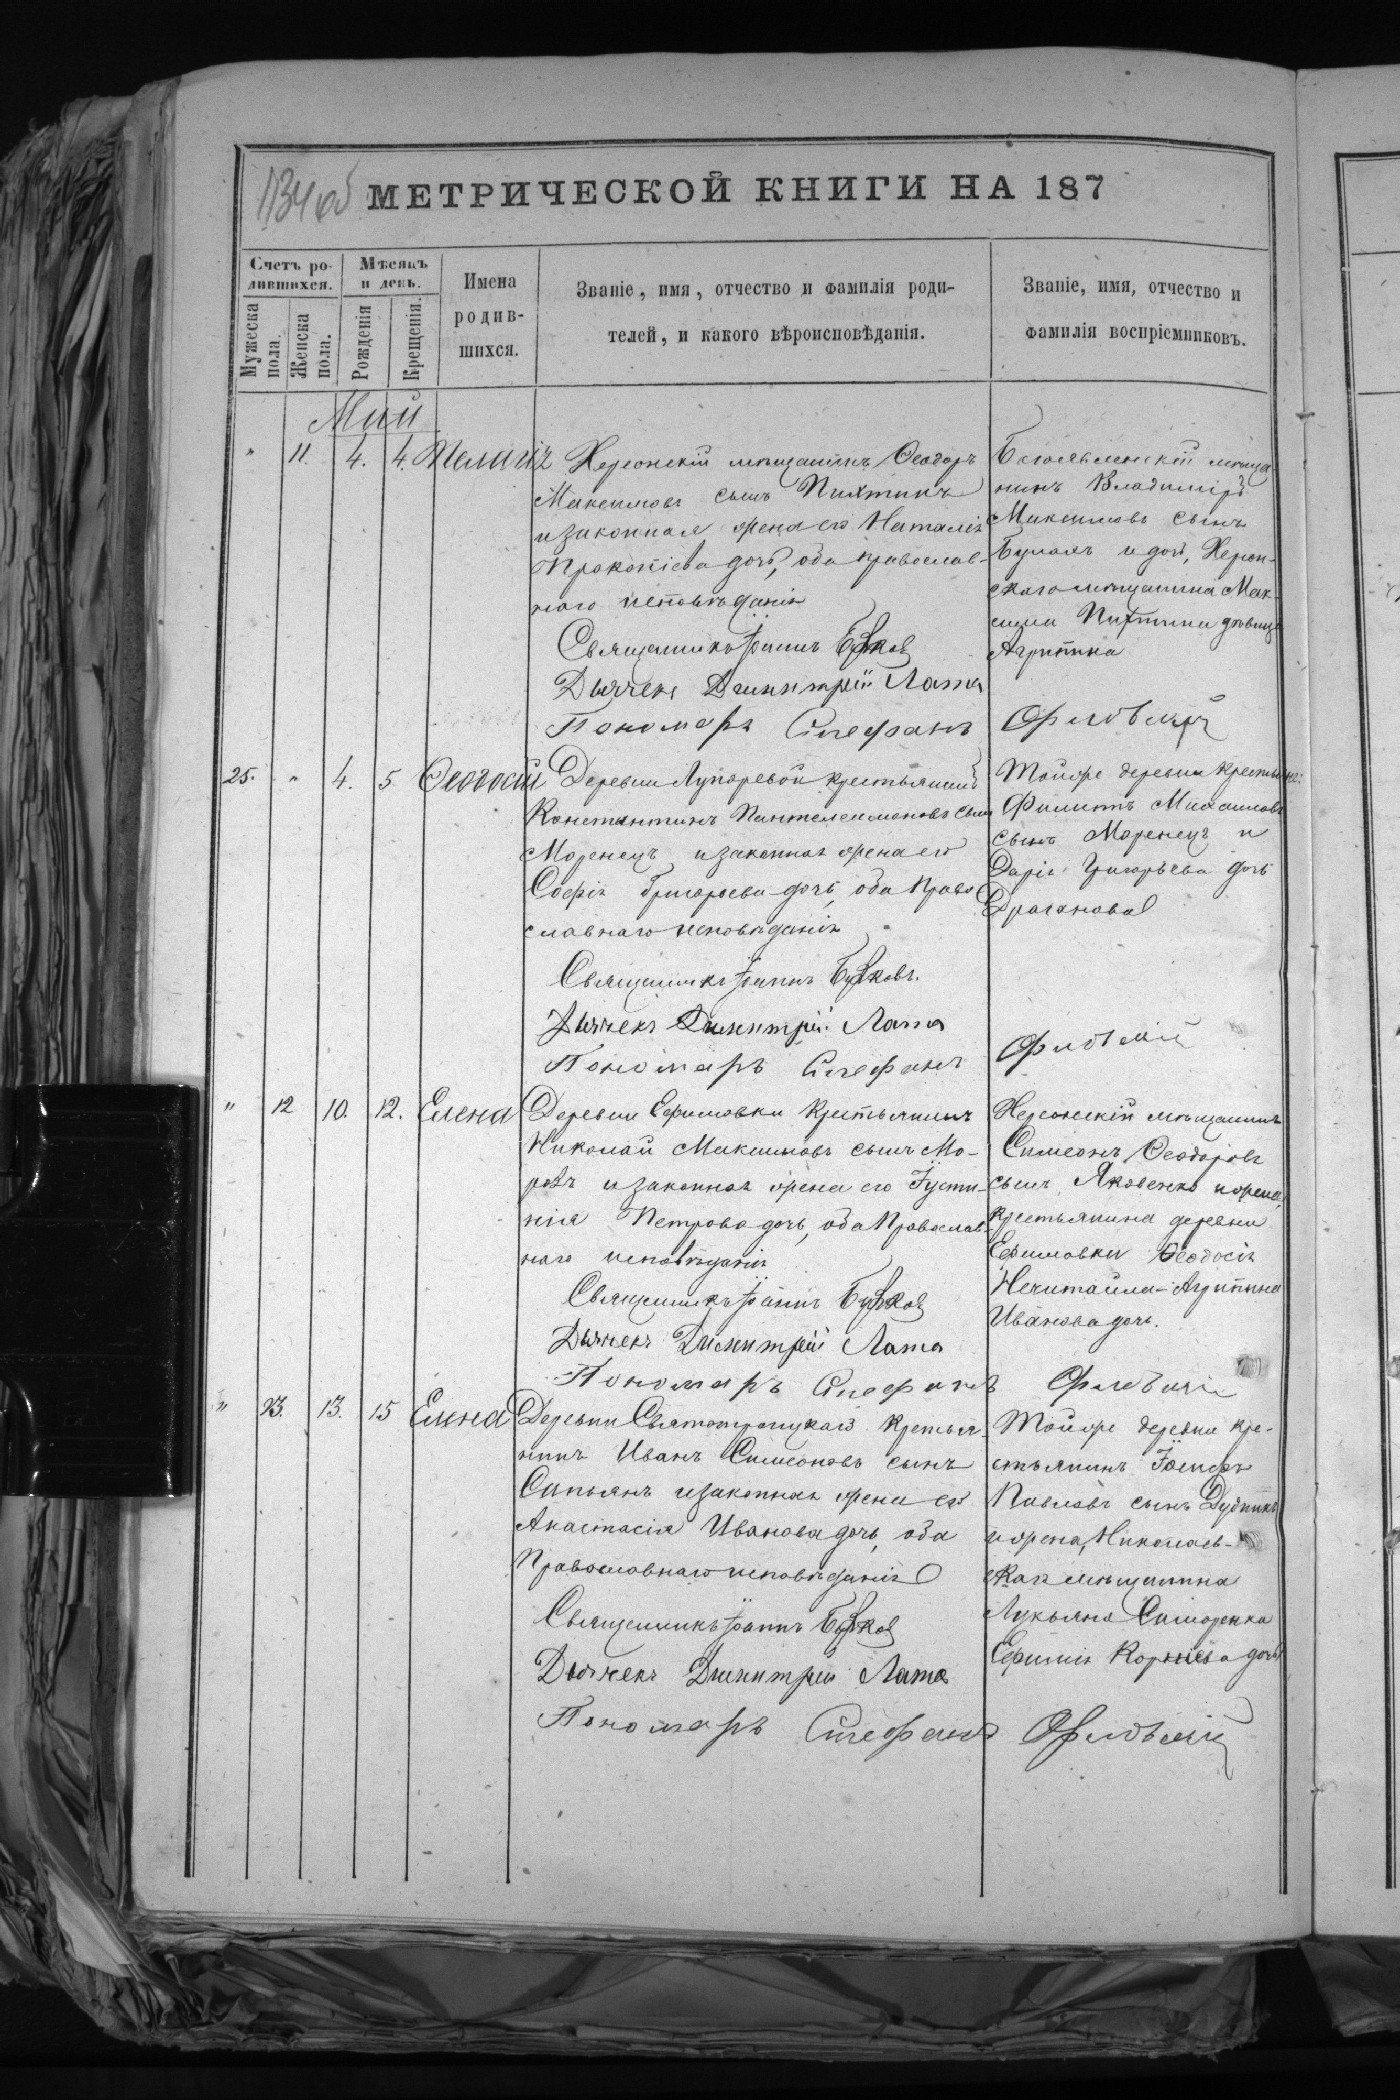 1134 об
МЕТРИЧЕСКОЙ КНИГИ НА 187
Счетъ ро-
дившихся.
Мѣсяцъ
и день.
Имена
родив-
шихся.
Званіе, имя, отчество и фамилія роди-
телей, и какого вѣроисповѣданія.
Званіе, имя, отчество и
фамилія воспріемниковъ.
Мужеска
пола.
Женска
пола.
Рожденія
Крещенія.
Май
" 11. 4. 4. Пелагія
Херсонскій мѣщанинъ Ѳеодоръ
Максимовъ сынъ Пихтинъ
и законная жена его Наталія
Прокопіева дочь, оба православ-
наго исповѣданія
Священникъ Іоаннъ
Дьячекъ Димитрій Лата
Пономарь Стефанъ Орловскій
мѣща
нинъ Владиміръ
Максимовъ сынъ
и дочь, Херсон-
скаго мѣщанина Мак-
сима Пихтина дѣвица
Агрипина
25. " 4. 5 Ѳеодосій
Деревни Лупаревой крестьянинъ
Константинъ Пантелеимоновъ сынъ
Моренецъ и законная жена его
Софія Григорьева дочь, оба Право
славнаго исповѣданія
Священникъ Іоаннъ
Дьячекъ Димитрій Лата
Пономарь Стефанъ Орловскій
Тойже деревни крестьяне:
Филиппъ Михаиловъ
сынъ Моренецъ и
Дарія Григорьева дочь
Драганова
" 12 10. 12. Елена
Деревни Ефимовки Крестьянинъ
Николай Максимовъ сынъ Мо-
розъ и законная жена его Іусти-
нія Петрова дочь, оба Православ-
наго исповѣданія
Священникъ Іоаннъ
Дьячекъ Димитрій Лата
Пономарь Стефанъ Орловскій
Херсонскій мѣщанинъ
Симеонъ Ѳеодоровъ
сынъ Яковенко и жена
крестьянина деревни
Ефимовки Ѳеодосія
Нечитайла - Агрипина
Иванова дочь.
" 13. 13. 15 Елена
Деревни Святотроицкаго Крестья-
нинъ Иванъ Симеоновъ сынъ
и законная жена его
Анастасія Иванова дочь, оба
Православнаго исповѣданія
Священникъ Іоаннъ
Дьячекъ Димитрій Лата
Пономарь Стефанъ Орловскій
Тойже деревни кре-
стьянинъ Іосифъ
Павловъ сынъ Дудникъ
и жена, Николаев-
скаго мѣщанина
Лукьяна Сидоренка
Ефимія Корніева дочь